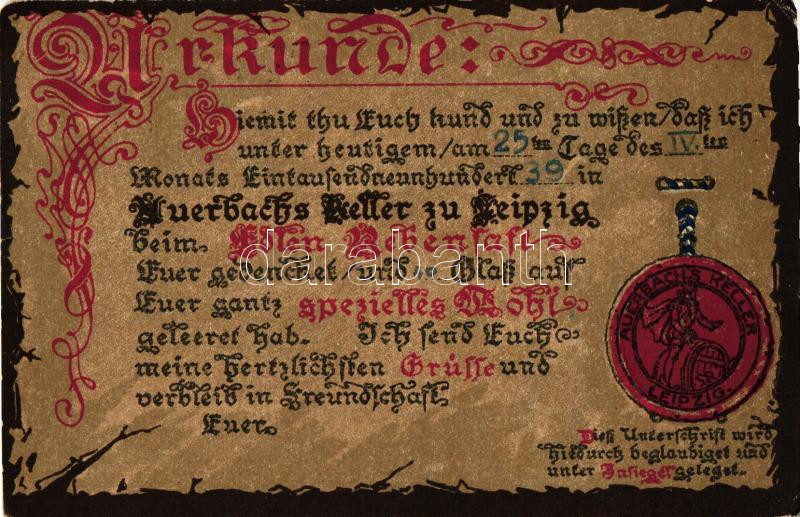 Urkunde:
Hiemit thu Euch kund und zu wißen/daß ich
unter heutigem/am 25ten Tage des IV.ten
Monats Eintausendneunhundert 39 in
Auerbachs Keller zu Leipzig
beim Edlen Rebensaft
Euer gedencket/und das Glaß auf
Euer gantz spezielles Wohl
geleeret hab. Ich send Euch
meine hertzlichsten Grüsse und
verbleib in Freundschaft
Euer
AUERBACHS KELLER
LEIPZIG.
Dieß Unterschrift wird
hiedurch beglaubiget und
unter Insiegel geleget.
darabanth